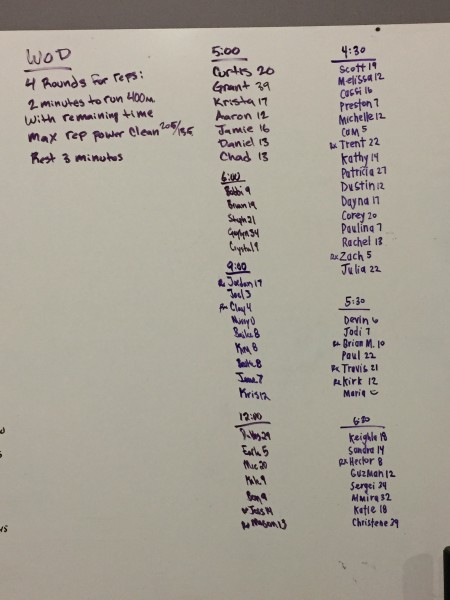 WOD
4 Rounds For reps:
2 minutes to run 400m
With remaining time
Max rep Power Clean 205/135
Rest 3 minutes
5:00
Curtis 20
Grant 39
Krista 17
Aaron 12
Jamie 16
Daniel 13
Chad 13
6:00
Bobbi 9
Brian 19
Steph 21
34
Crystal 9
9:00
Rx Jordan 17
Joel 3
Rx Clay 4
8
Kira 8
8
Jana 7
Kris 12
12:00
29
Earl 5
20
9
Ben 9
Jess 14
Rx Mason 13
4:30
Scott 19
Melissa 12
Cassi 16
Preston 7
Michelle 12
Cam 5
Rx Trent 22
Kathy 14
Patricia 27
Dustin 12
Dayna 17
Corey 20
Paulina 7
Rachel 13
Rx Zach 5
Julia 22
5:30
Devin 6
Jodi 7
Rx Brian M. 10
Paul 22
Rx Travis 21
Rx Kirk 12
Maria
6:30
Keighla 18
Sandra 14
Rx Hector 8
Guzman 12
Sergei 34
Almira 32
Katie 18
Christene 39